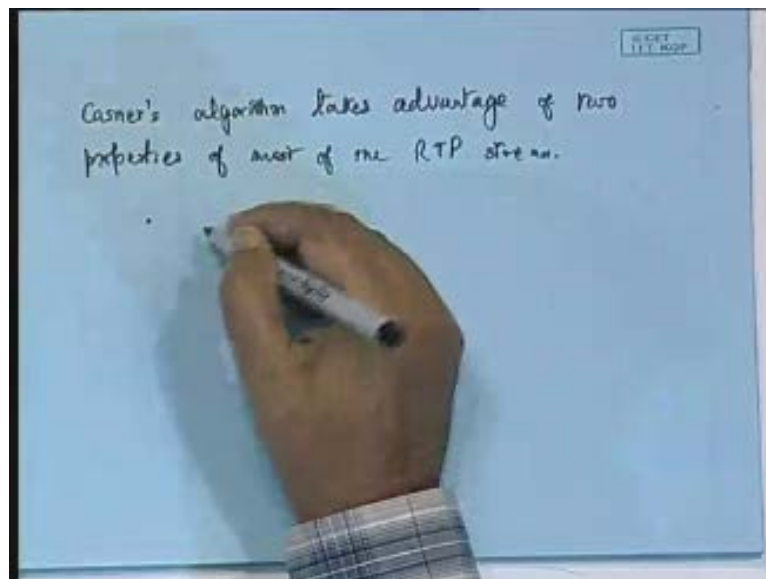 Casner's algorithm takes advantage of two
properties of most of the RTP stream.